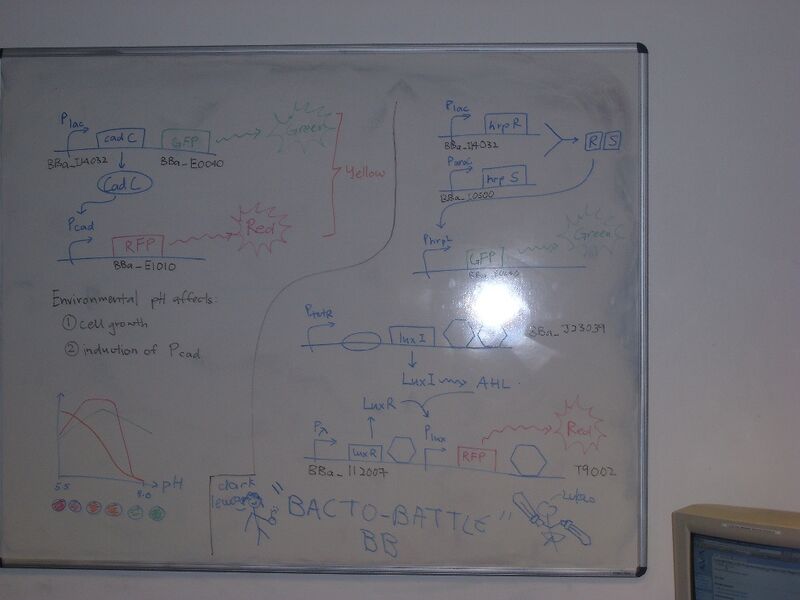 Plac
cad C
GFP
Green
BBa_I14032
BBa_E0040
Cad C
Pcad
RFP
Red
BBa_E1010
Yellow
Environmental pH affects:
① cell growth
② induction of Pcad
pH
5.5
9.0
Plac
hrp R
BBa_I14032
R S
Parac
hrp S
BBa_I0500
PhrpL
GFP
Green
PtetR
lux I
BBa_J23039
LuxI
AHL
LuxR
Pλ
luxR
Plux
RFP
Red
BBa_I12007
T9002
dark
"BACTO-BATTLE"
BB